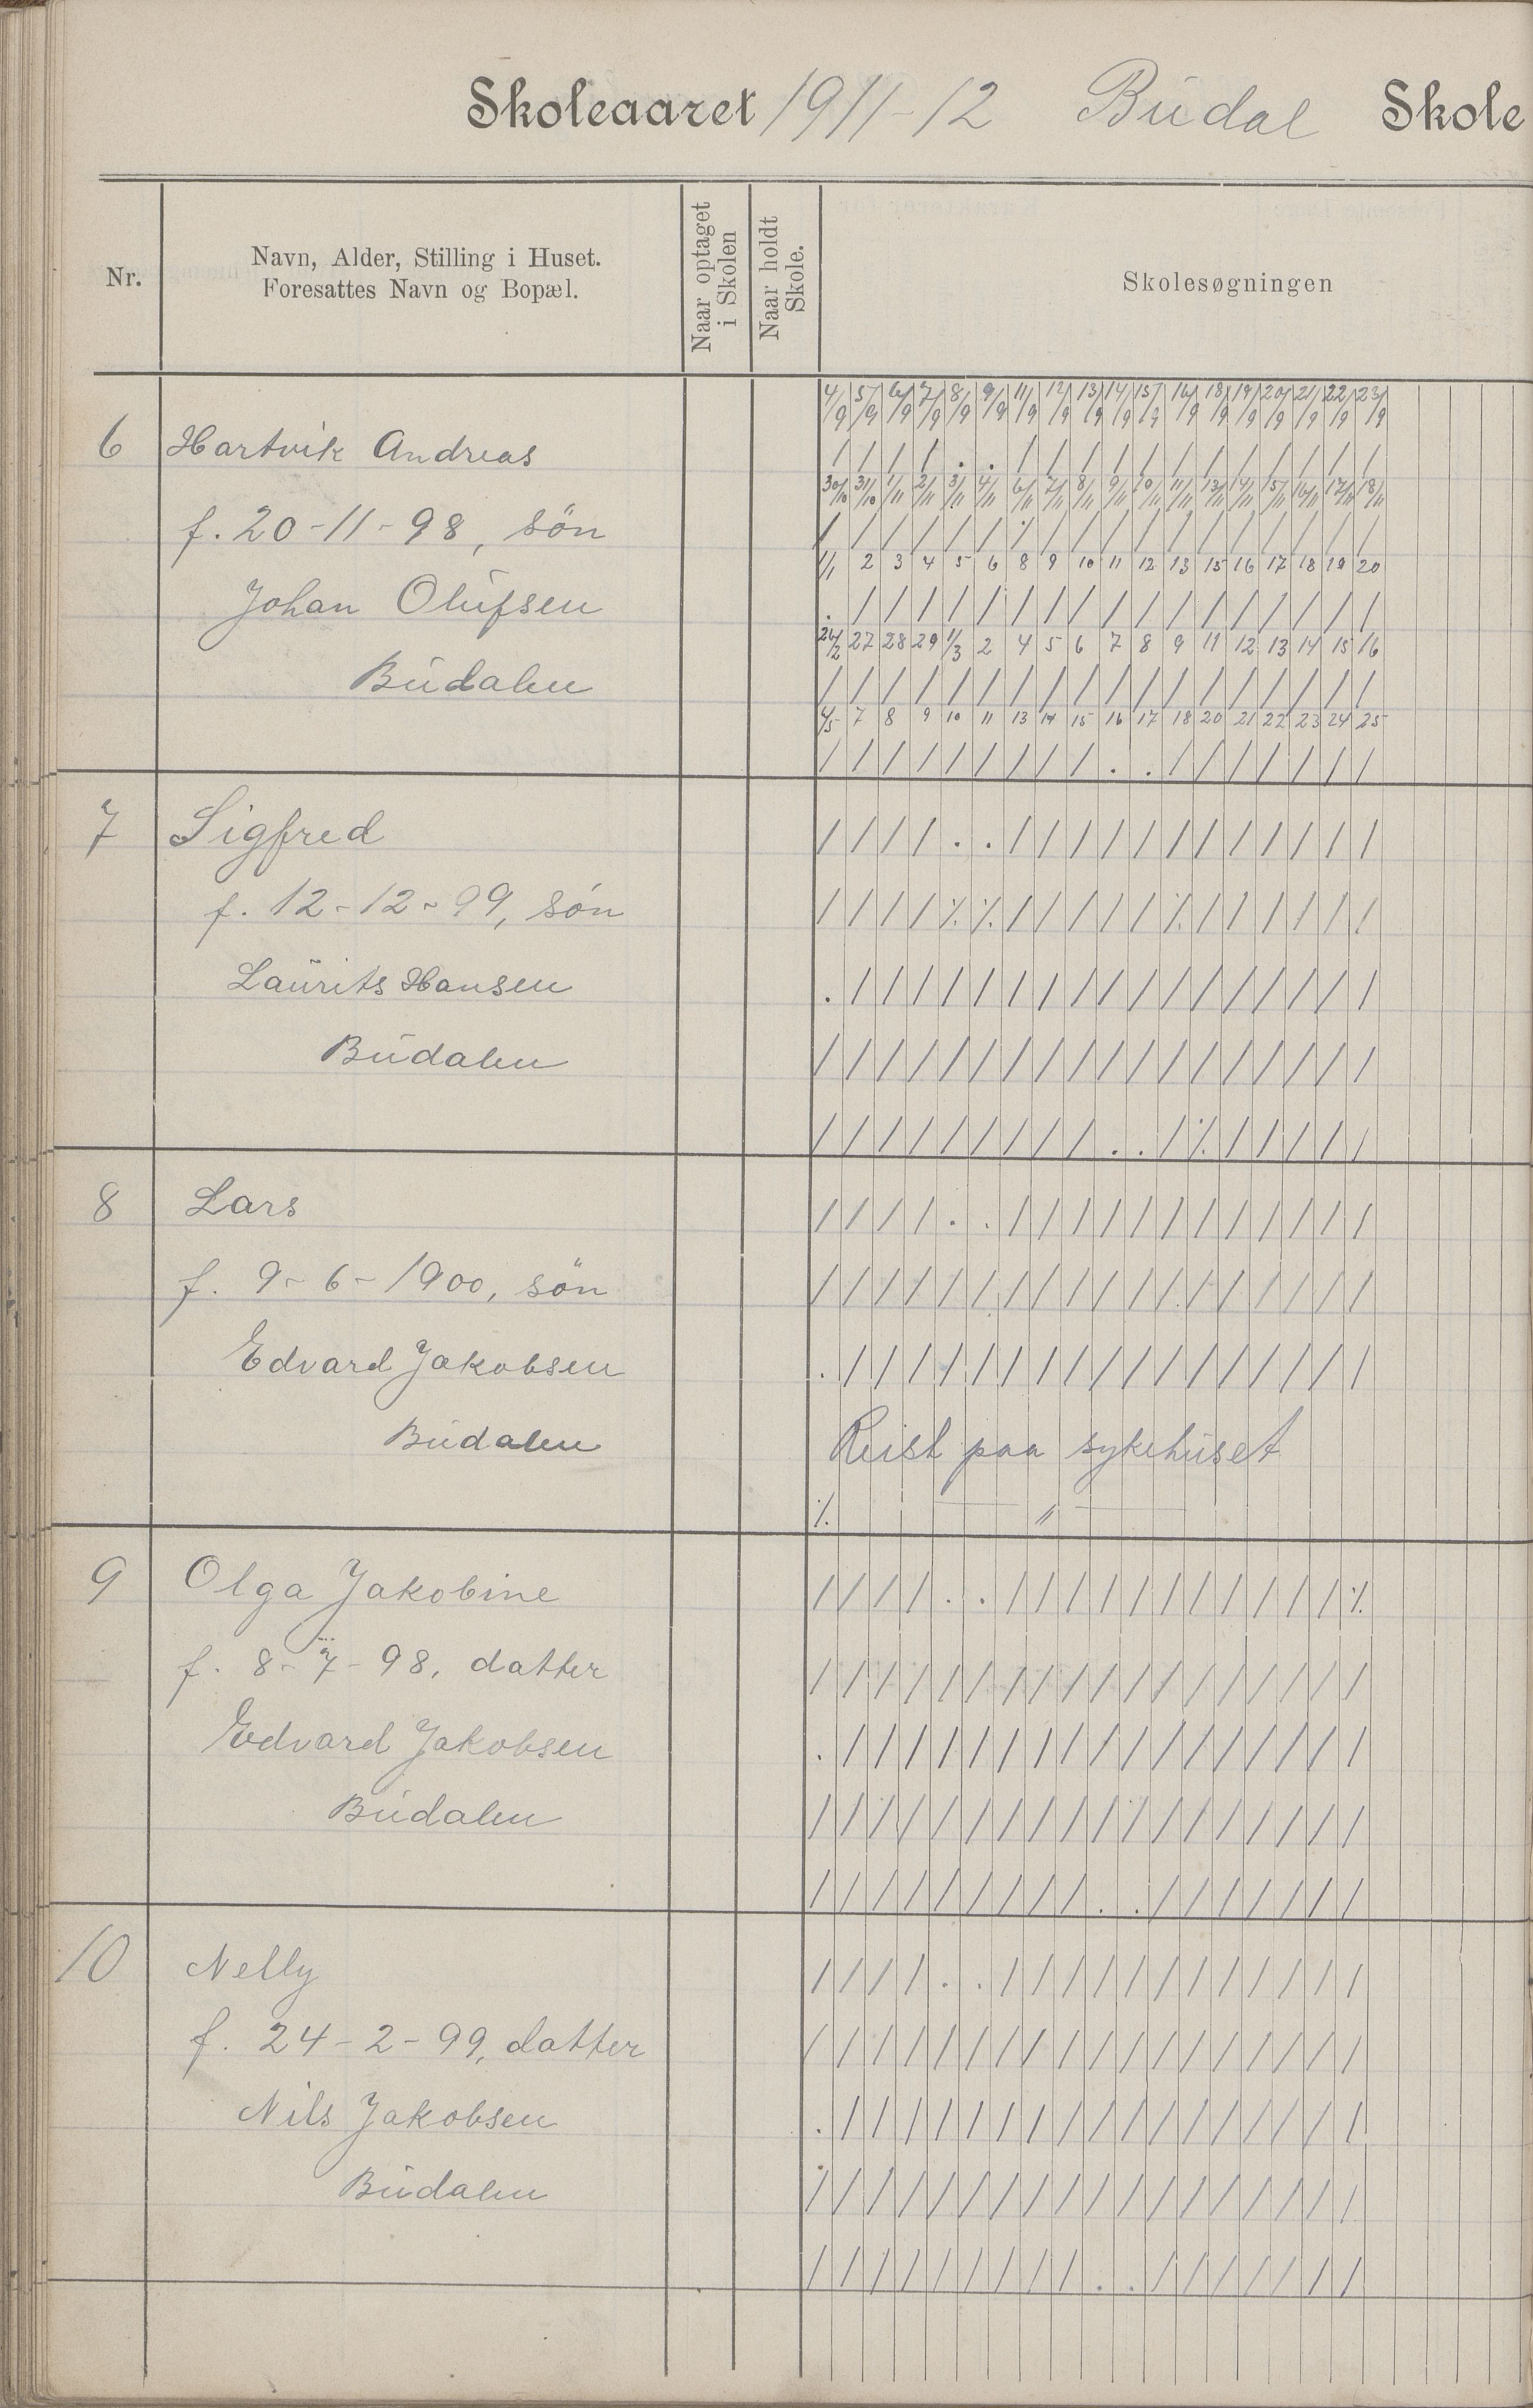 Skoleaaret 1911-12 Budal Skole
Nr.
Navn, Alder, Stilling i Huset.
Foresattes Navn og Bopæl.
Naar optaget
i Skolen
Naar holdt
Skole.
Skolesøgningen
4/9 5/9 6/9 7/9 8/9 9/9 11/9 12/9 13/9 14/9 15/9 16/9 18/9 19/9 20/9 21/9 22/9 23/9
6 Hartvik Andreas / / / / . . / / / / / / / / / / / /
30/10 31/10 1/11 2/11 3/11 4/11 6/11 7/11 8/11 9/11 10/11 11/11 13/11 14/11 15/11 16/11 17/11 18/11
f. 20-11-98, sön
1/1 2 3 4 5 6 8 9 10 11 12 13 15 16 17 18 19 20
Johan Olufsen . / / / / / / / / / / / / / / / / /
26/2 27 28 29 1/3 2 4 5 6 7 8 9 11 12 13 14 15 16
Budalen / / / / / / / / / / / / / / / / / /
4/5 7 8 9 10 11 13 14 15 16 17 18 20 21 22 23 24 25
/ / / / / / / / / . . / / / / / / /
7 Sigfred / / / / . . / / / / / / / / / / / /
f. 12-12-99, sön / / / / ٪ ٪ / / / / / ٪ / / / / / /
Laurits Hansen . / / / / / / / / / / / / / / / / /
Budalen / / / / / / / / / / / / / / / / / /
/ / / / / / / / / . . / ٪ / / / / /
8 Lars / / / / . . / / / / / / / / / / / /
f. 9-6-1900, sön / / / / / / / / / / / / / / / / / /
Edvard Jakobsen . / / / / / / / / / / / / / / / / /
Budalen Reist paa sykehuset
٪ — " —
9 Olga Jakobine / / / / . . / / / / / / / / / / / ٪
f. 8-7-98, datter / / / / / / / / / / / / / / / / / /
Edvard Jakobsen . / / / / / / / / / / / / / / / / /
Budalen / / / / / / / / / / / / / / / / / /
/ / / / / / / / / . . / / / / / / /
10 Nelly / / / / . . / / / / / / / / / / / /
f. 24-2-99, datter / / / / / / / / / / / / / / / / / /
Nils Jakobsen . / / / / / / / / / / / / / / / / /
Budalen / / / / / / / / / / / / / / / / /
/ / / / / / / / / . . / / / / / / /